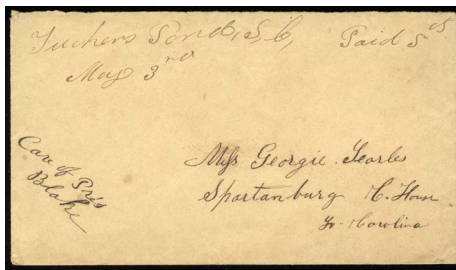 Tuckers Pond, S.C, Paid 5 cts
May 3rd
Care of Pres
Blake
Miss Georgie Searles
Spartanburg C. House
So- Carolina